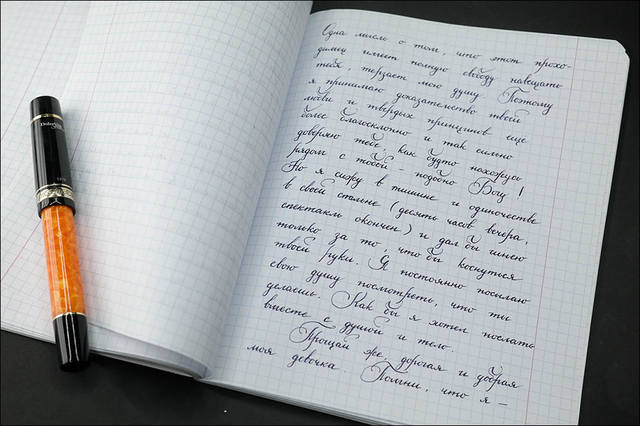 Одна мысль о том, что этот прохо-
димец имеет полную свободу навещать
тебя, терзает мою душу Поэтому
я принимаю доказательство твоей
любви и твердых принципов еще
более благосклонно и так сильно
доверяю тебе, как будто нахожусь
рядом с тобой - подобно Богу!
Но я сижу в тишине и одиночестве
в своей спальне (десять часов вечера,
спектакль окончен) и дал бы имею
только за то, что бы коснуться
твоей руки. Я постоянно посылаю
свою душу посмотреть, что ты
делаешь. Как бы я хотел послать
вместе с душой и тело.
Прощай же, дорогая и добрая
моя девочка Помни, что я -